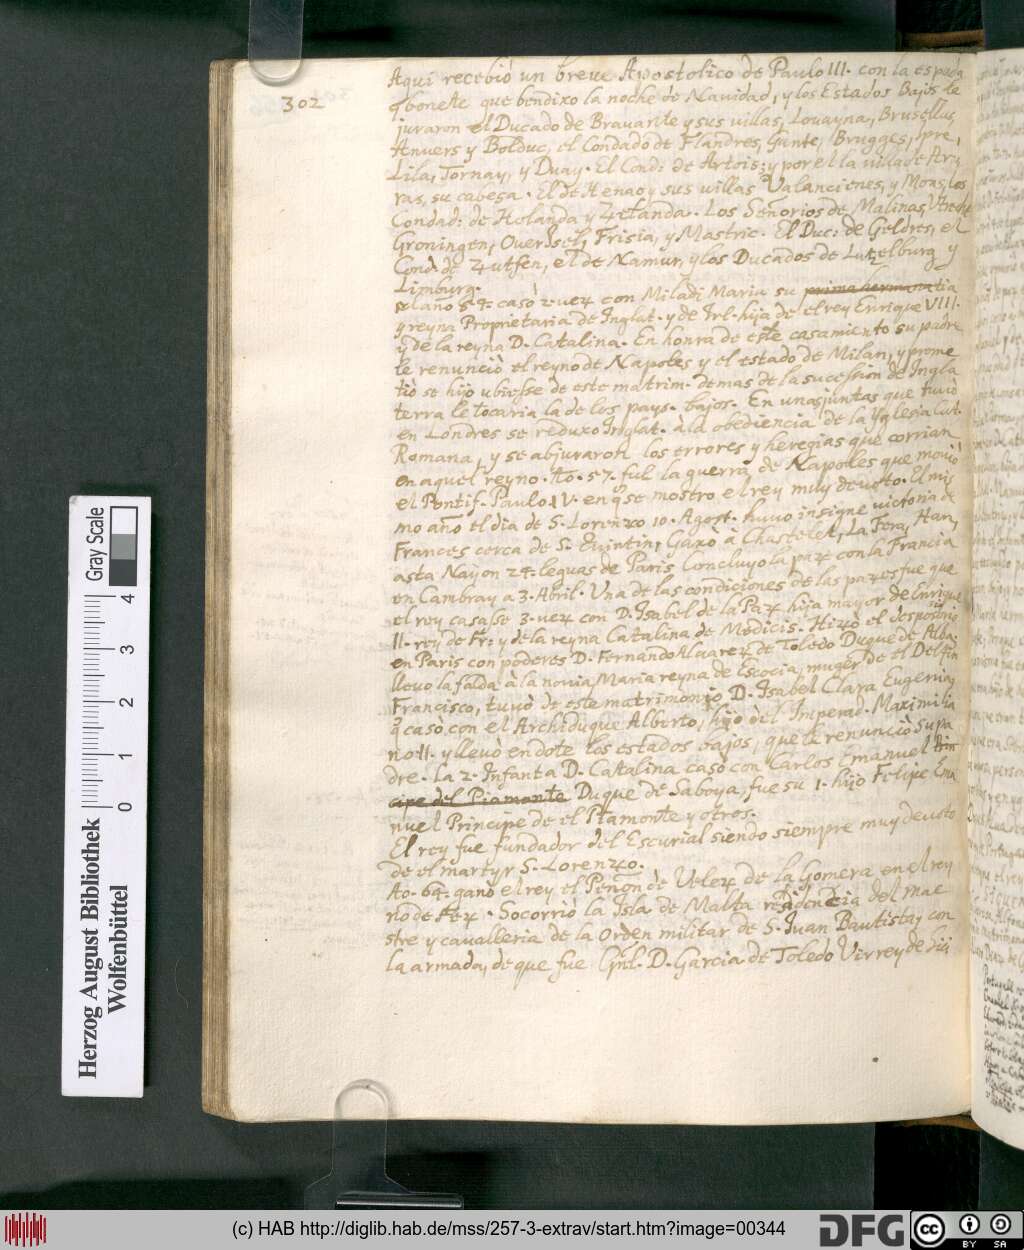 302
Aqui recebiò un breve Apostolico de Paulo III. con la espada
y bonete que bendixo la noche de Navidad, y los Estados bajos le
juraron el Ducado de Bravante y sus villas, Lovayna, Brusellas,
Anvers y Bolduc, el Condado de Flandres, Gante, Brugges, Ipre,
Lila, Tornay, y Duay. El Cond: de Artois, y por el la villa de Ar-
ras, su cabesa. El de Henao y sus villas Valancienes, y Mons, los
Condad: de Holanda y Zelanda. Los Señorios de Malinas, Utrecht
Groningen, Over Isel, Frisia, y Mastric. El Duc: de Geldres, el
Cond: de Zutfen, el de Namur, y los Ducados de Lutzelburg y
Limburg.
El año 54. casò 2. vez con Miladi Maria su prima hermana tia
y reyna Proprietaria de Inglat. y de Irl. hija de el rey Enrique VIII.
y de la reyna D. Catalina. En honra de este casamiento su padre
le renunciò el reyno de Napoles y el estado de Milan, y prome
tiò se hijo ubiesse de este matrim. demas de la sucession de Ingla
terra le tocaria la de los pays. bajos. En unas juntas que tuvò
en Londres se reduxo Inglat. à la obediencia de la Yglesia Cat.
Romana, y se abjuraron los errores y heregias que corrian
en aquel reyno. Ao. 57. fuè la guerra de Napoles que moviò
el Pontif. Paulo IV. en qe se mostro el rey muy devoto. El mis
mo año el dia de S. Lorenzo 10. Agost. huvo insigne victoria de
Frances cerca de S. Quintin, Ganò à Chastelet, La Fera, Han,
asta Nayon 24. leguas de Paris Concluyo la paz con la Francia
en Cambray a 3. Abril. Una de las condiciones de las pazes fue que
el rey casasse 3. vez con D. Isabel de la Paz hija mayor de Enrique
II. rey de Fr: y de la reyna Catalina de Medicis. Hizo el desposorio
en Paris con poderes D. Fernando Alvarez de Toledo Duque de Alba.
llevo la falda à la novia, Maria reyna de Escocia, muger de el Delfin
Francisco, tuvò de este matrimonio D. Isabel Clara Eugenia,
q casò con el Archiduque Alberto, hijo dèl Imperad. Maximilia
no II. y llevo en dote los estados bajos, que le renunciò su pa
dre. La 2. Infanta D. Catalina casò con Carlos Emanuel Prin
cipe del Piamonte Duque de Saboya, fue su 1. hijo Felipe Ema
nuel Principe de el Piamonte y otros.
El rey fue fundador del Escurial siendo siempre muy devoto
de el martyr S. Lorenzo.
Ao. 64. ganò el rey el Peñon de Velez de la Gomera en el rey
no de Fez. Socorriò la Isla de Malta residencia del mae
stre y cavalleria de la Orden militar de S. Juan Bautista, con
la armada, de que fue Gnl. D. Garcia de Toledo Virrey de Sici
Herzog August Bibliothek
Wolfenbüttel
Gray Scale
0 1 2 3 4
(c) HAB http://diglib.hab.de/mss/257-3-extrav/start.htm?image=00344
DFG
cc BY SA